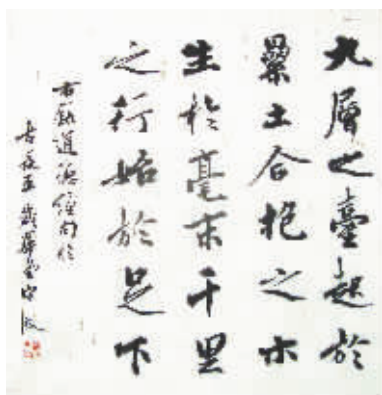 九層之臺起於
纍土合抱之木
生於毫末千里
之行始於足下
右録道德經句於